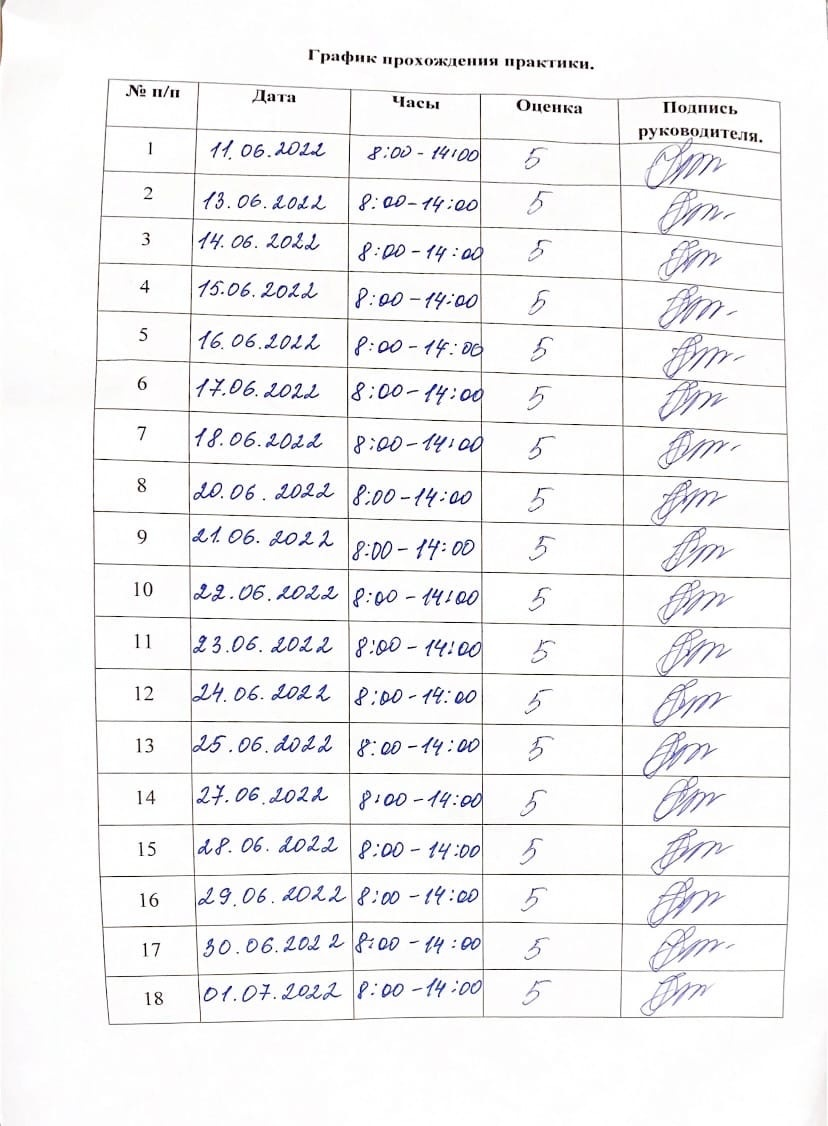 График прохождения практики.
№ п/п Дата Часы Оценка Подпись руководителя.
1 11.06.2022 8:00 - 14:00 5
2 13.06.2022 8:00 - 14:00 5
3 14.06.2022 8:00 - 14:00 5
4 15.06.2022 8:00 - 14:00 5
5 16.06.2022 8:00 - 14:00 5
6 17.06.2022 8:00 - 14:00 5
7 18.06.2022 8:00 - 14:00 5
8 20.06.2022 8:00 - 14:00 5
9 21.06.2022 8:00 - 14:00 5
10 22.06.2022 8:00 - 14:00 5
11 23.06.2022 8:00 - 14:00 5
12 24.06.2022 8:00 - 14:00 5
13 25.06.2022 8:00 - 14:00 5
14 27.06.2022 8:00 - 14:00 5
15 28.06.2022 8:00 - 14:00 5
16 29.06.2022 8:00 - 14:00 5
17 30.06.2022 8:00 - 14:00 5
18 01.07.2022 8:00 - 14:00 5